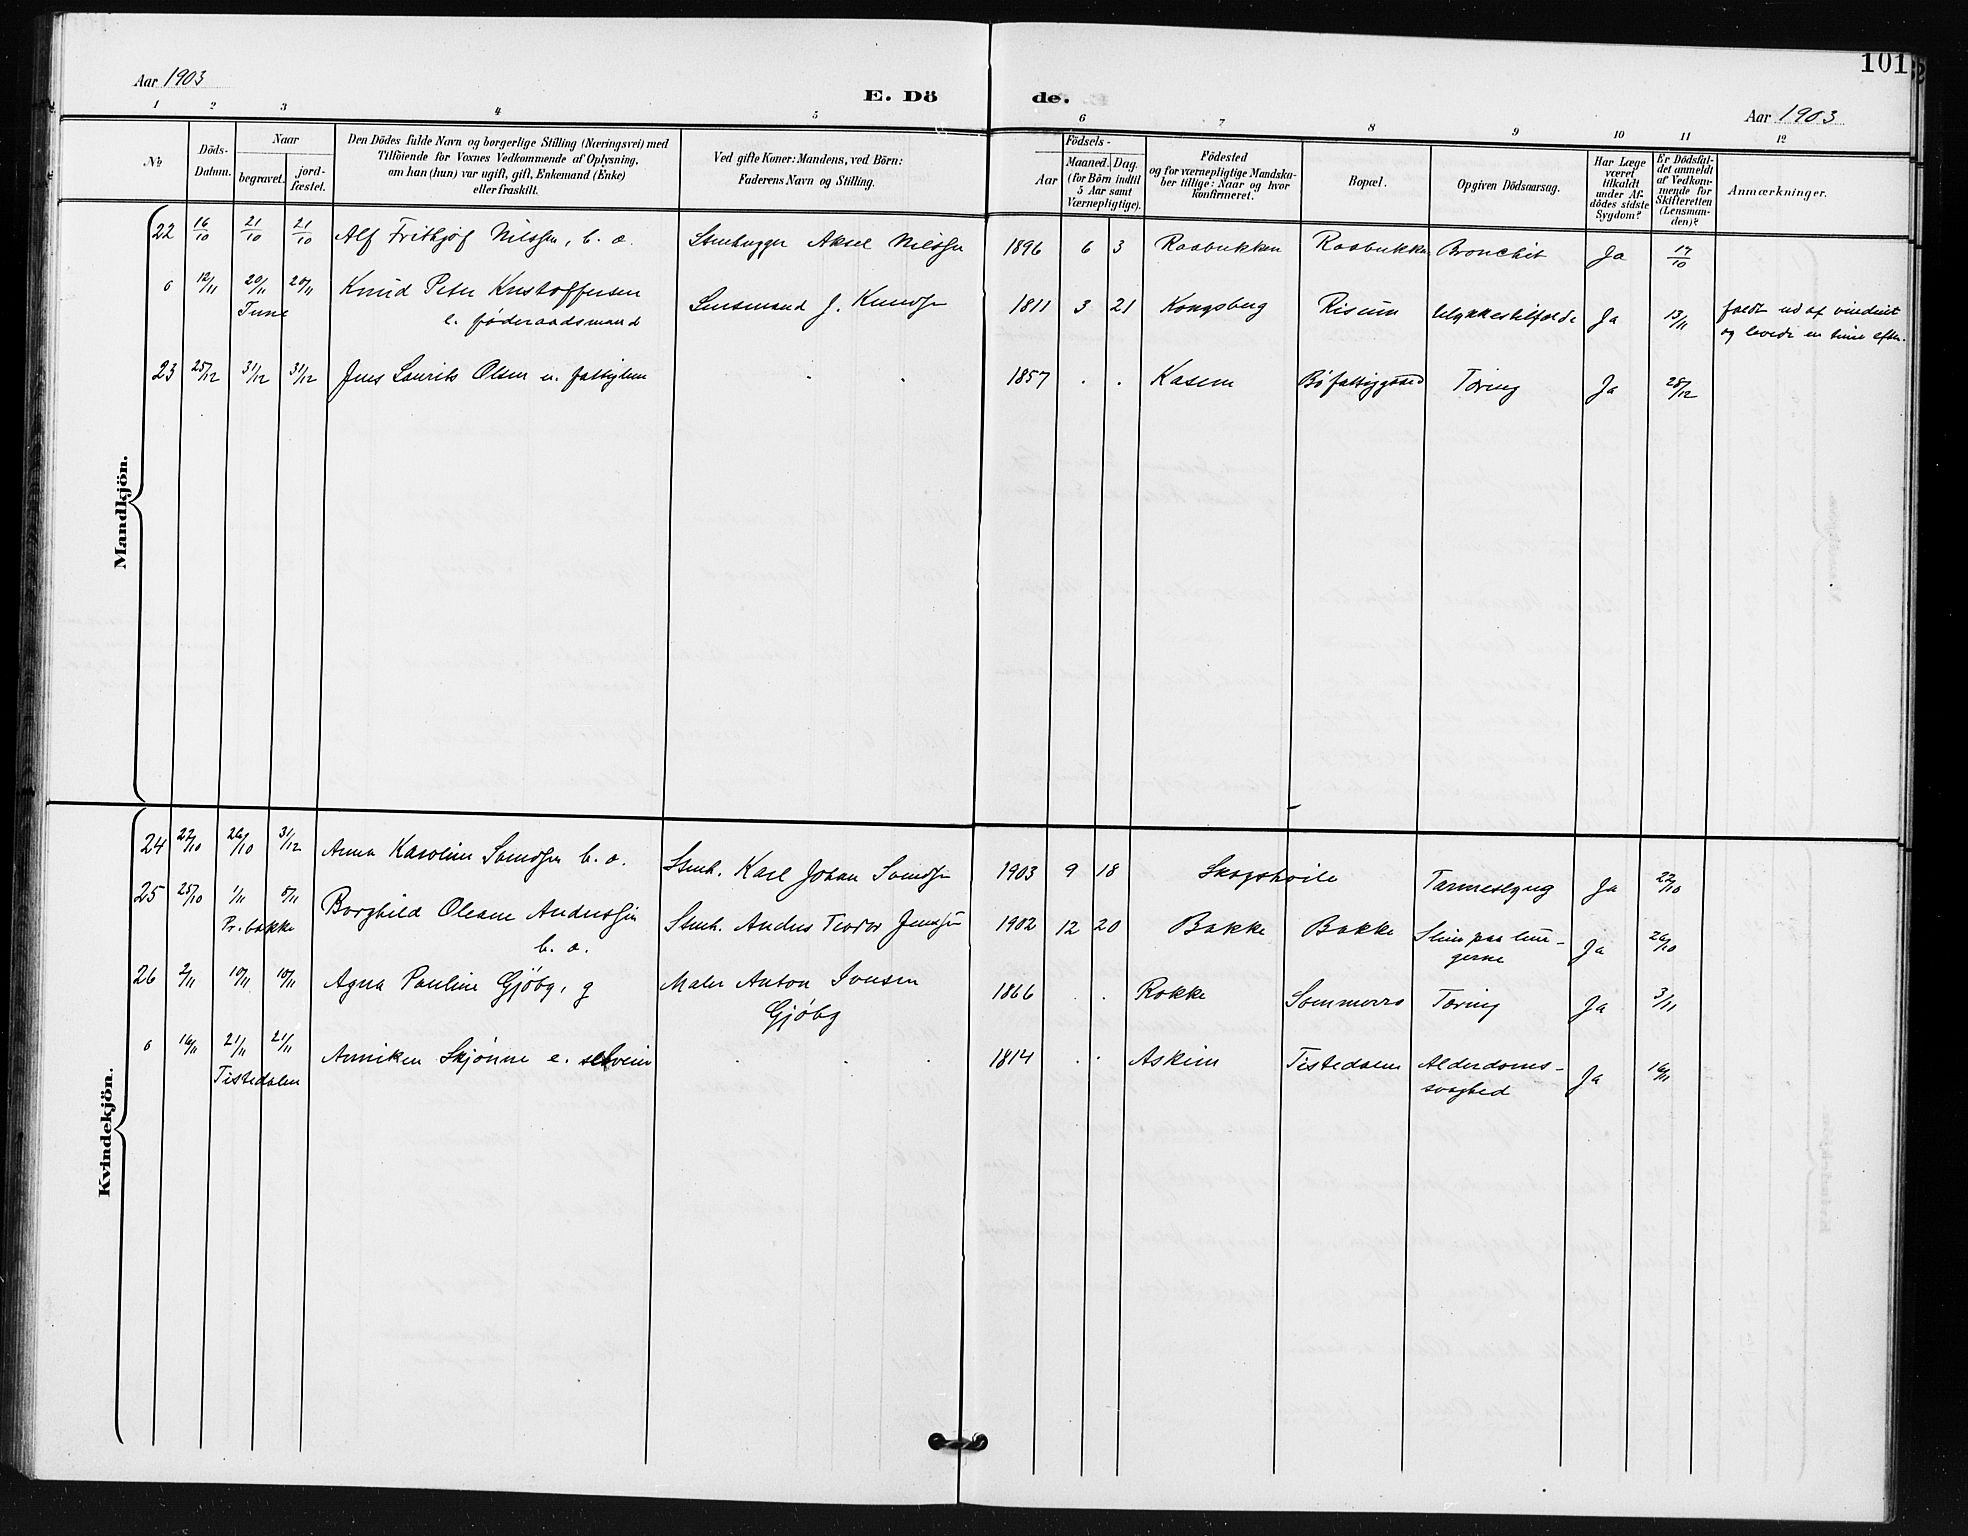 Aar 1903
E. Dö de.
101
Aar 1903
1 2 3 4 5 6 7 8 9 10 11 12
No.
Döds-Datum.
Naar
begravet. jord-fæstet.
Den Dödes fulde Navn og borgerlige Stilling (Næringsvei) med
Tilföiende for Voxnes Vedkommende af Oplysning,
om han (hun) var ugift, gift, Enkemand (Enke)
eller fraskilt.
Ved gifte Koner: Mandens, ved Börn:
Faderens Navn og Stilling.
Födsels-
Aar Maaned. Dag.
(for Börn indtil
5 Aar samt
Værnepligtige).
Födested
og for værnepligtige Mandska-
ber tillige: Naar og hvor
konfirmeret.
Bopæl.
Opgiven Dödsaarsag.
Har Læge
været
tilkaldt
under Af-
dödes sidste
Sygdom?
Er Dödsfal-
det anmeldt
af Vedkom-
mende for
Skifteretten
(Lensman-
den)?
Anmærkninger.
Mandkjön.
22 16/10 21/10 21/10 Alf Frithjof Nilssen, b. a. Stenhugger Aksel Nilssen 1896 6 3 Raabukken Raabukken Bronchit Ja 17/10
0 12/11 20/11 20/11 Knud Peter Kristoffersen Lensmand J. Knudsen 1811 3 21 Kongsberg Risum Ulykkestilfælde Ja 13/11 faldt ud af vinduet
Tune e. föderaadsmand og levede en time efter.
23 25/12 31/12 31/12 Jens Laurits Olsen u. fattiglem . . 1857 . . Kasem Bö fattiggaard Tæring Ja 28/12
Kvindekjön.
24 22/10 26/10 31/12 Anna Karoline Svendsen b. a. Stenh. Karl Johan Svendsen 1903 9 18 Skogshvile Tarmeslyng Ja 22/10
25 25/10 1/11 8/11 Borghild Oleane Anderssen Stenh. Anders Teodor Jenssen 1902 12 20 Bakke Bakke Slim paa lun-
Pr. bakke b. a. gerne Ja 26/10
26 2/11 10/11 10/11 Agna Pauline Gjöby, g Maler Anton Ivensen 1866 . . Rokke Sommerro Tæring Ja 3/11
Gjöby
0 16/11 21/11 21/11 Anniken Skjönne e. selveier . . . 1814 . . Askim Tistedalen Alderdoms-
Tistedalen svaghed Ja 16/11